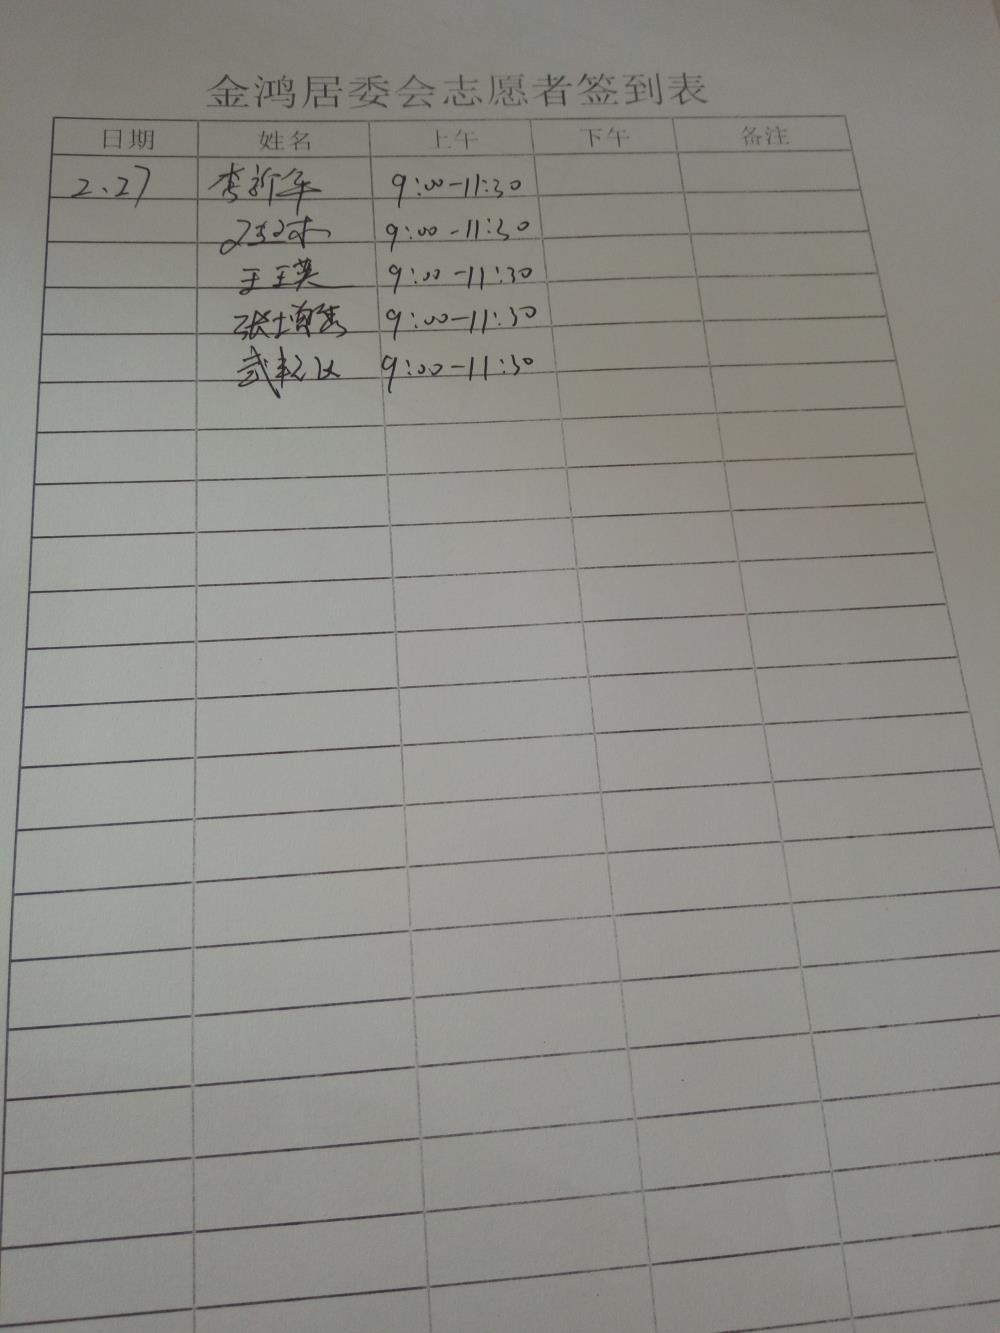 金鸿居委会志愿者签到表
日期 姓名 上午 下午 备注
2.27 李新华 9:00-11:30
9:00-11:30
王玉英 9:00-11:30
张增秀 9:00-11:30
武 9:00-11:30